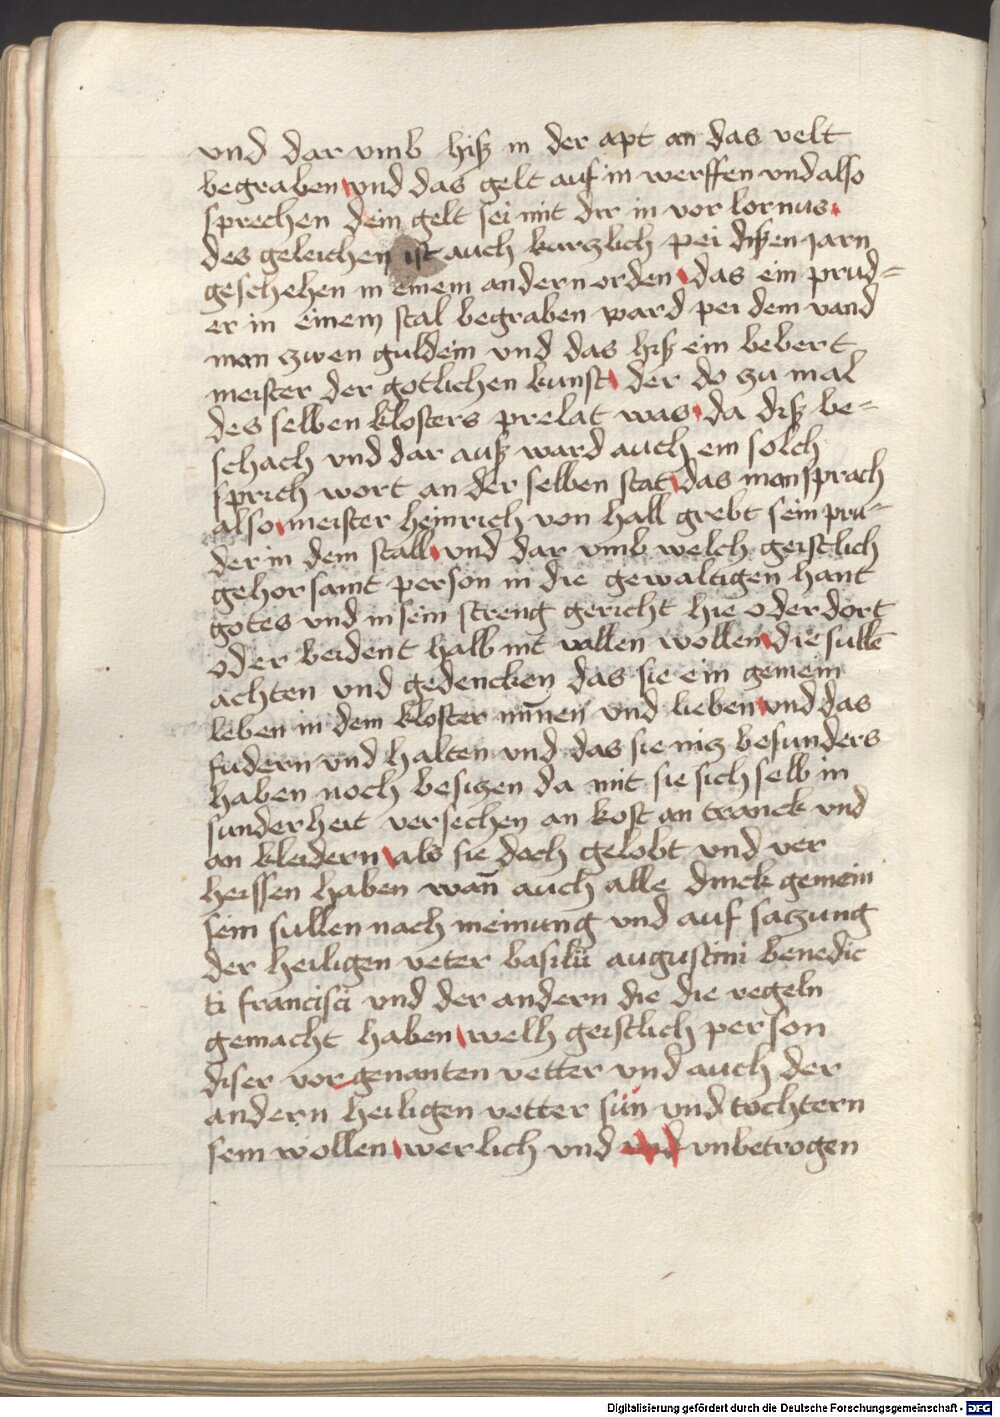 vnd dar vmb hiß in der apt an das velt
begraben vnd das gelt auf in werffen vnd also
sprechen dein gelt sei mit dir in vor lornus
des geleichen ist auch kurzlich pei dißen jarn
geschehen in einem andern orden das ein prud=
er in einem stal begraben ward pei dem vand
man zwen guldein vnd das hiß ein bebert
meister der gotlichen kunst der do zu mal
des selben klosters prelat was da diß be=
schach vnd dar auß ward auch ein solch
sprich wort an der selben stat das man sprach
also meister heinrich von hall grebt sein pru=
der in dem stall vnd dar vmb welch geistlich
gehorsamt person in die gewaltigen hant
gotes vnd in sein streng gericht hie oder dort
oder beident halb nit vallen wollen die sullē
achten vnd gedencken das sie ein gemein
leben in dem kloster mīnen vnd lieben vnd das
fudern vnd halten vnd das sie niz besunders
haben noch besizen da mit sie sich selb in
sunderheit versechen an kost an tranck vnd
an kleidern als sie doch gelobt vnd ver
heissen haben wañ auch alle dinck gemein
sein sullen nach meinung vnd auf saczung
der heiligen veter basilii augustini benedic
ti francisci vnd der andern die die regeln
gemacht haben welh geistlich person
diser vor genanten vetter vnd auch der
andern heiligen vetter sün vnd tochtern
sein wollen werlich vnd vnd vnbetrogen
Digitalisierung gefördert durch die Deutsche Forschungsgemeinschaft - DFG